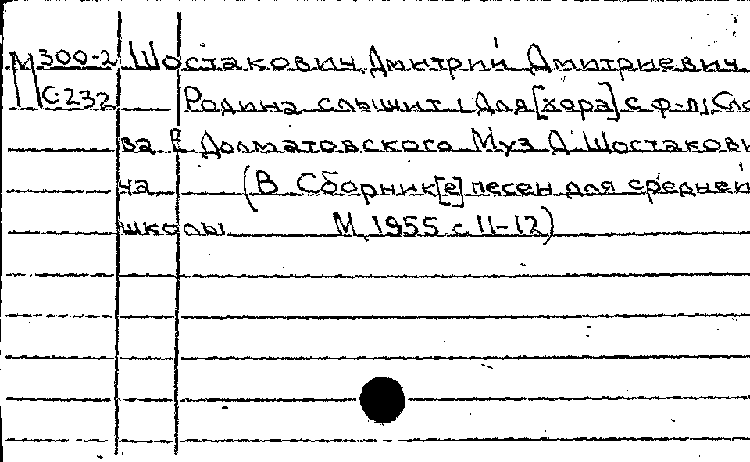 М300-2 Шостакович, Дмитрий Дмитриевич
С232 Родина слышит, Для [хора] с ф-п, Сло
ва Е Долматовского Муз Д Шостакови
ча (В Сборник[е] песен для средней
школы М, 1955 с 11-12)